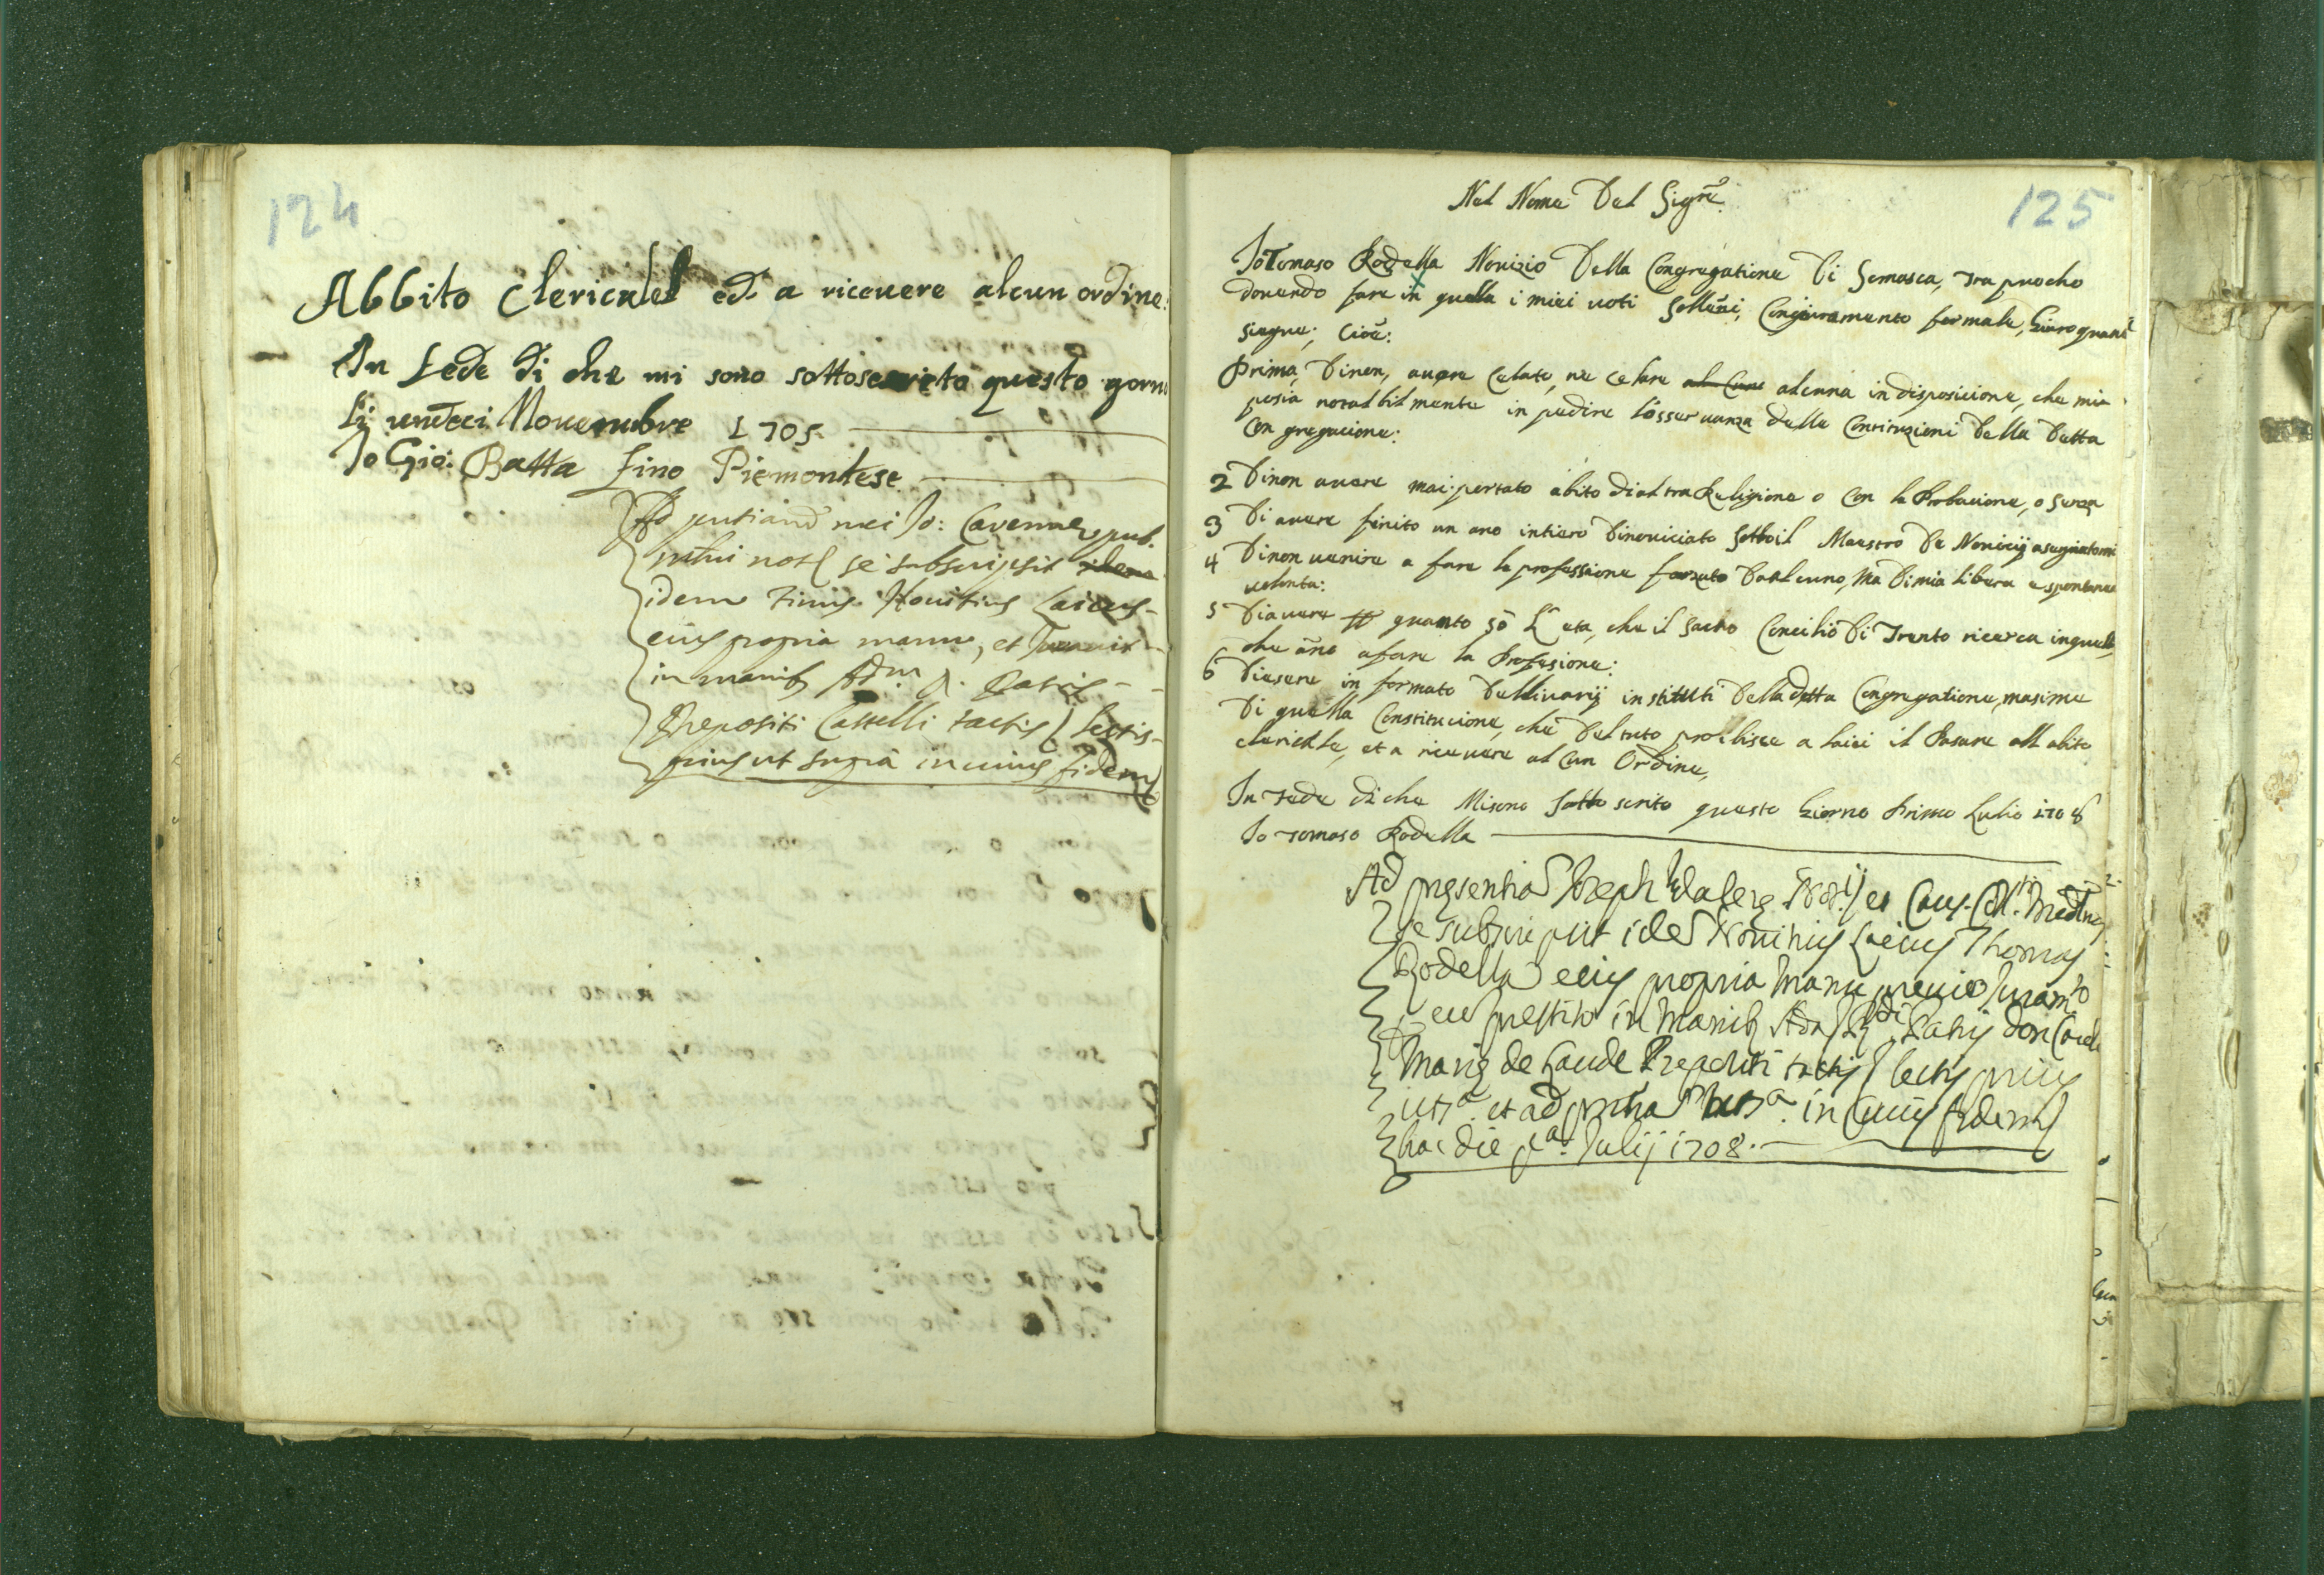 124
Abbito Clericalel ed a riceuere alcun ordine:
In Fede di che mi sono sottoscrito questo gorno
li Nouembre 1705.
Io Gio: Batta Fino Piemontese
Ad mei Jo: Cavenne pub.
not se subscripsit
idem Finus Nouitius Laicus
eius propria manu, et Iurauit
in manib Adm R. Patris
Prepositi Castelli tactis lectis
prius ut supra in cuius fidem
125
Nel Nome Del Sigre
Io Tomaso Rodella Nouizio Della Congregatione Di Somasca, tra puocho
douendo fare in quella i miei uoti Solleni, Con giuramento formale, Giuro quant
siegue; Cioe:
Prima, Di non, auere Celato, ne Celare alcuna in disposicione, che mia
posia notabilmente in pedire l'osseruanza delle Constituzioni Della Detta
Con gregacione:
2 Di non auere mai portato abito di altra Religione o Con la Probacione, o senza
3 Di auere finito un ano intiero Di nouiciato Sotto il Maestro De Nouicij asegniatomi
4 Di non uenire a fare la professione forzato Da alcuno, Ma Di mia libera e spontanea
uolonta:
5 Di auere quanto so L eta, che il Sacro Concilio Di Trento ricerca in quelli,
che ano a fare la Profesione:
6 Di esere in formato Delli uarij instituti Della detta Congregatione, masime
Di quella Constitucione, che Del tuto proibisce a laici il Pasare all abito
clericale, et a riceuere al Cun Ordine,
In Fede di che Mi sono sotto scrito questo Giorno Primo Lulio 1708
Io Tomaso Rodella
Ad presentia Joseph Notij et Canc.
se subscripsit idem Nouitius Laicus Thomas
Rodella eius propria manu preuio Iuramto
per eu prestito in manib Adm Rdi Patris Don
Marie de Laude Prepositi tactis lectis prius
ut sa. et ad ut sa. in Cuius fidem
hac die pa. Julij 1708.